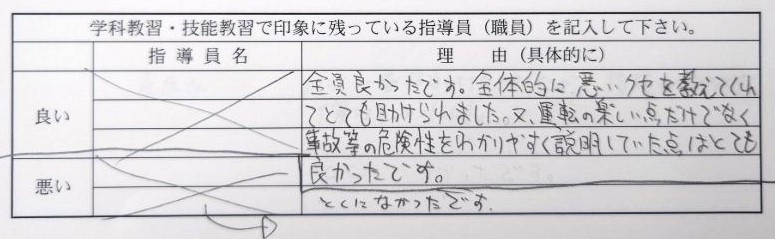 学科教習・技能教習で印象に残っている指導員（職員）を記入して下さい。
指導員名 理由（具体的に）
良い
全員良かったです。全体的に悪いクセを教えてくれ
てとても助けられました。又、運転の楽しい点だけでなく
事故等の危険性をわかりやすく説明していた点はとても
良かったです。
悪い
とくになかったです.